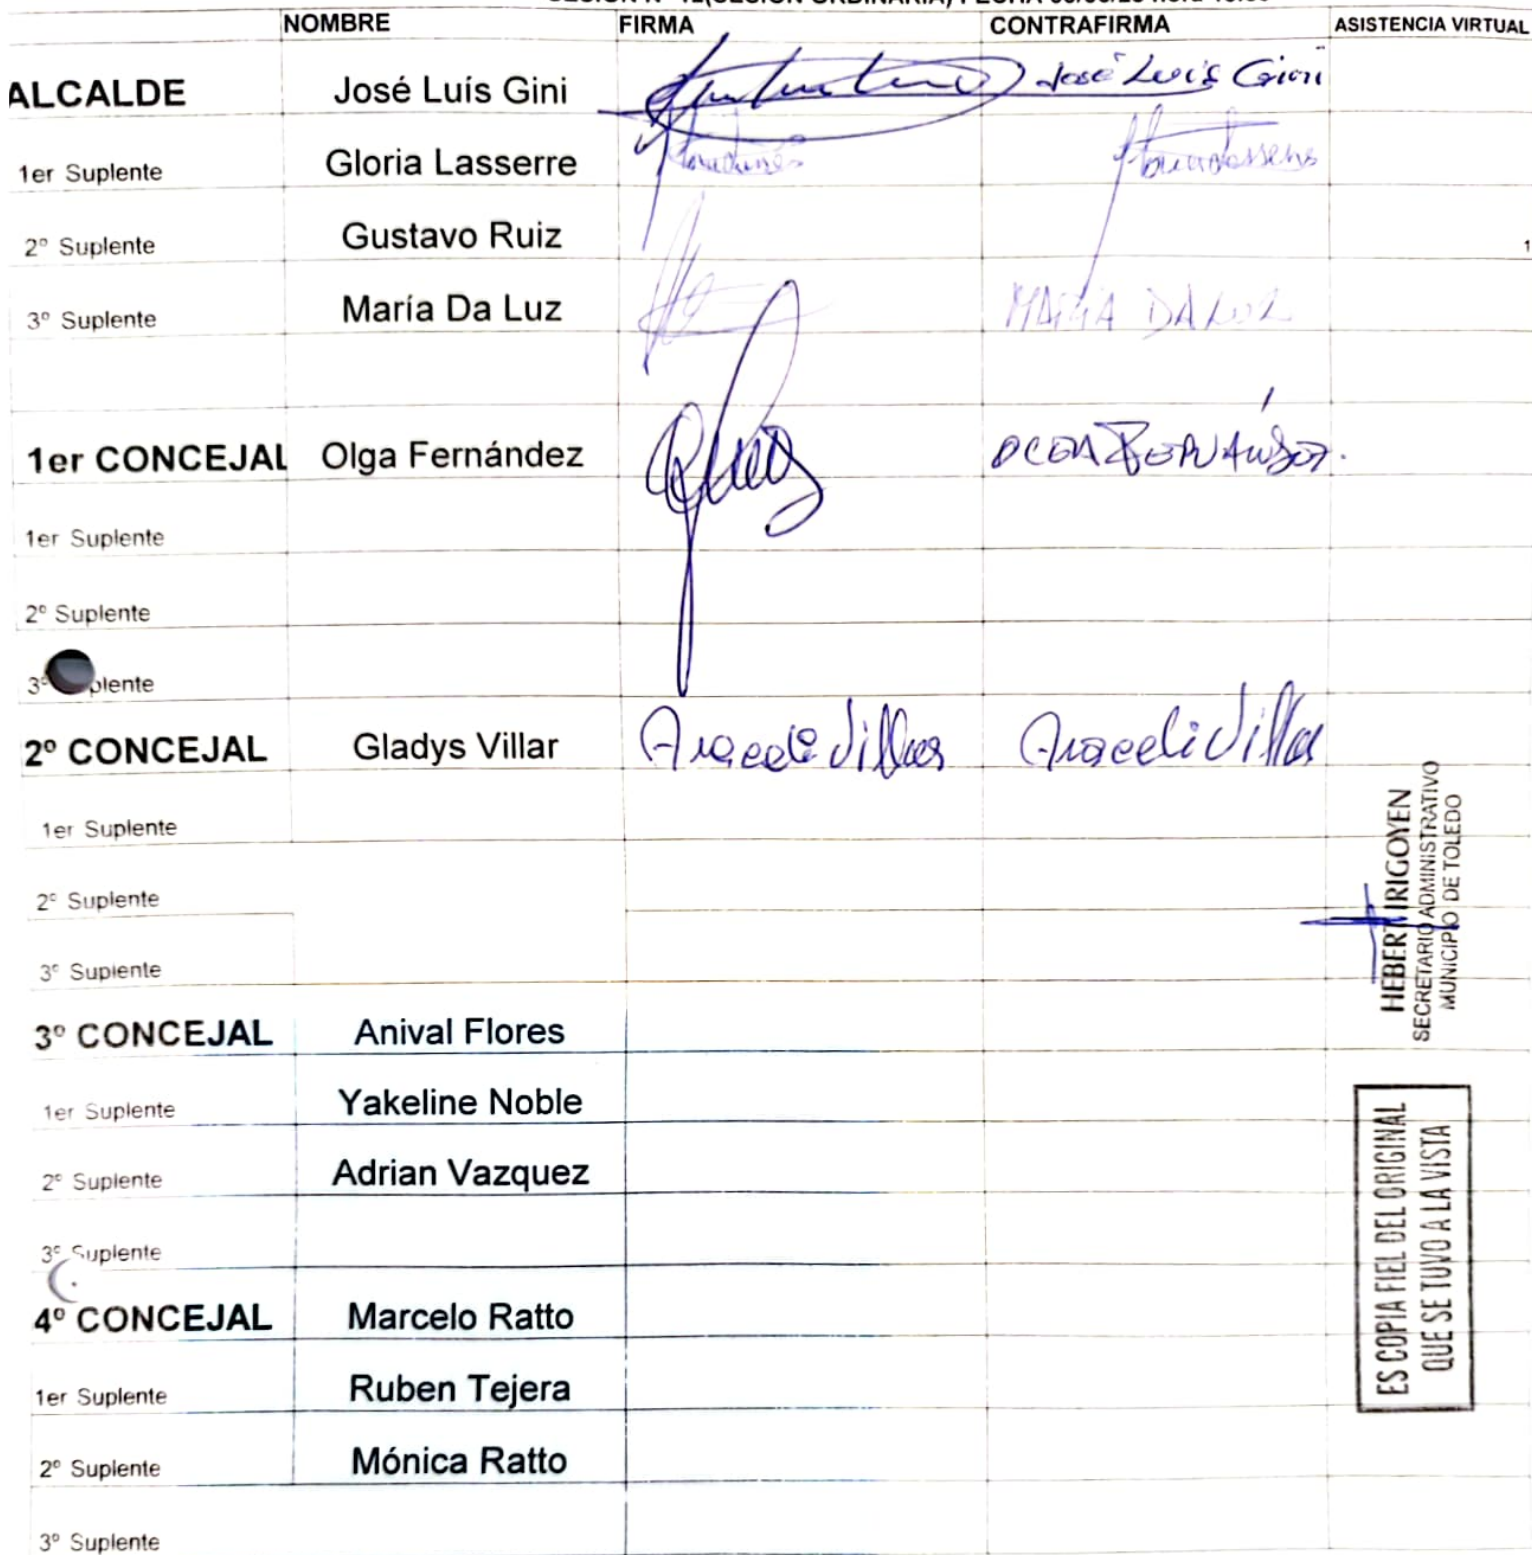 NOMBRE FIRMA CONTRAFIRMA ASISTENCIA VIRTUAL
ALCALDE José Luís Gini José Luis Gini
1er Suplente Gloria Lasserre
2º Suplente Gustavo Ruiz 1
3º Suplente María Da Luz MARIA DA LUZ
1er CONCEJAL Olga Fernández OLGA FERNÁNDEZ.
1er Suplente
2º Suplente
3º plente
2º CONCEJAL Gladys Villar Araceli Villar Araceli Villar
1er Suplente
2º Suplente
3º Suplente
3º CONCEJAL Anival Flores
1er Suplente Yakeline Noble
2º Suplente Adrian Vazquez
3º Suplente
4º CONCEJAL Marcelo Ratto
1er Suplente Ruben Tejera
2º Suplente Mónica Ratto
3º Suplente
HEBERT IRIGOYEN
SECRETARIO ADMINISTRATIVO
MUNICIPIO DE TOLEDO
ES COPIA FIEL DEL ORIGINAL
QUE SE TUVO A LA VISTA